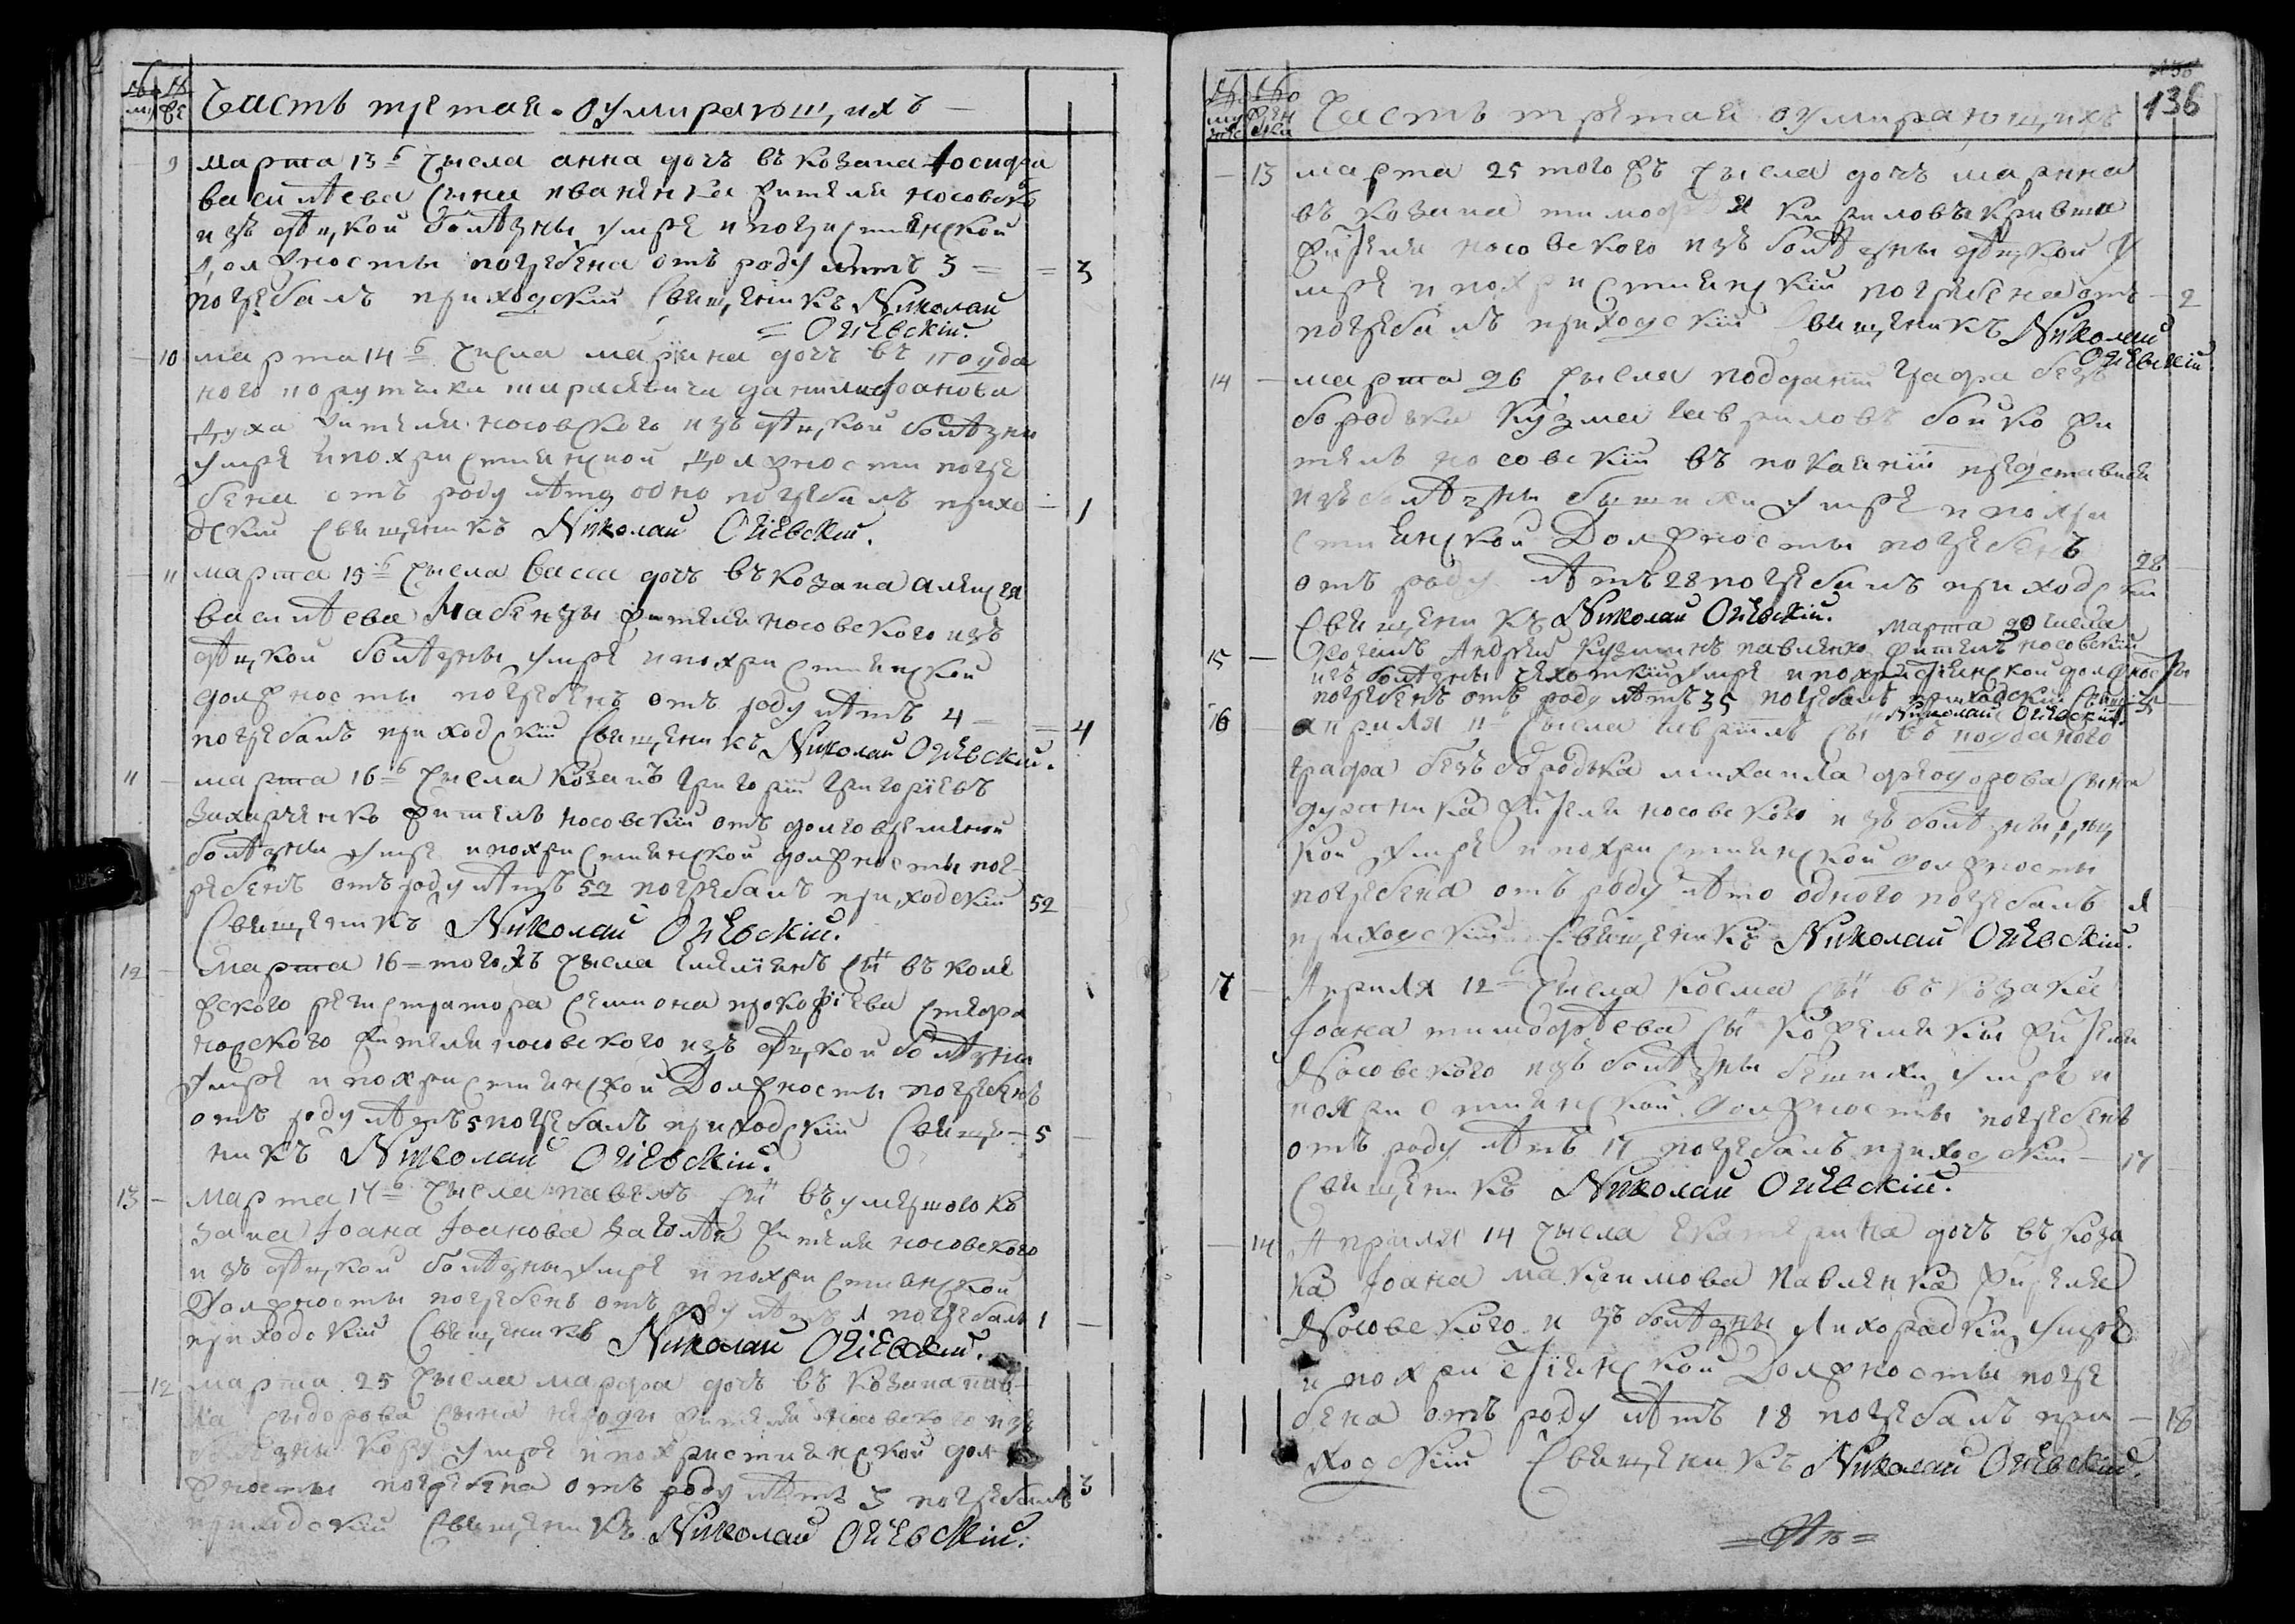 Часть третая оумирающихъ
9 марта 13 б числа анна дочь въ козака Іосифа
василіева сына иваненка жителя носовско
изъ дѣцкой болѣзны умре и похристиянской
должности погребена отъ роду лѣтъ 3 = = 3
погребалъ приходский священикъ Николай
= Огіевскій.
10 марта 14 б числа марина дочь въ
жителя носовского изъ дѣцкой болѣзни
умре и похристиянской должности погре
бена отъ роду лѣто одно погребалъ прихо — 1
дский священикъ Николай Огіевскій.
11 марта 15 б числа васса дочь въ козака алексея
василіева жителя носовского изъ
дѣцкой болѣзны умре и похристиянской
должносты погребенъ отъ роду лѣтъ 4 =
погребалъ приходскій священикъ Николай Огіевскій. = 4
11 марта 16 б числа козакъ григорій григоріевъ
захарченко житель носовскій отъ долговремяной
болѣзны умре и похристиянской должносты пог-
ребенъ отъ роду лѣтъ 52 погребалъ приходскій 52
священикъ Николай Огіевскій.
12 марта 16 = тогожъ числа емелиянъ сынъ въ коле
жского регистратора семиона прокофіева
жителя носовского изъ дѣцкой болѣзны
умре и похристиянской Должносты погребенъ
отъ роду лѣтъ 5 погребалъ приходскій свяще — 5
никъ Николай Огіевскій.
13 марта 17 б числа павелъ сынъ въ умершого ко
зака Іоана Іоанова жителя носовского
изъ дѣцкой болѣзны умре и похристиянской
Должносты погребенъ отъ роду лѣтъ 1 погребалъ 1
приходскій священикъ Николай Огіевскій.
12 марта 25 числа марфа дочь въ козака пав-
ла сидорова сына жителя носовского изъ
болѣзны кору умре и похристиянской дол
жносты погребена отъ роду лѣтъ 3 погребалъ 3
приходскій священикъ Николай Огіевскій.
136
Часть третая оумирающихъ
13 марта 25 того жъ числа дочь марина
въ козака тимофея кириловъ
жителя носовского изъ болѣзны дѣцкой у
мре и похристиянскій погребена отъ — 2
погребалъ приходскій священикъ Николай
Огіевскій.
14 марта 26 числа подданій графа безъ
бородька кузма гавриловъ бойко жи
тель носовскій въ покаяніи представися
изъ болѣзны умре и похри
стиянской Должносты погребенъ 28
отъ роду лѣтъ 28 погребалъ приходскій
священикъ Николай Огіевскій. марта 30 числа
15 козакъ Андрей кузминъ павленко житель носовский
изъ болѣзны умре и похристіянской должносты
погребенъ отъ роду лѣтъ 35 погребалъ приходскій свящ
Николай Огіевскій.
16 априля 11 числа гаврыилъ сынъ въ подданого
графа безъбородька михаила феодорова сына
жителя носовского изъ болѣзны дѣц
кой умре и похристиянской должносты
погребена отъ роду лѣто одного погребалъ 1
приходскій священикъ Николай Огіевскій.
17 Априля 12 числа косма сынъ въ козака
Іоана тимофѣева сынъ жителя
Носовского изъ болѣзны умре и
похристиянской должносты погребенъ
отъ роду лѣтъ 17 погребалъ приходскій — 17
священикъ Николай Огіевскій.
14 Априля 14 числа екатерина дочь въ коза
ка Іоана максимова павленка жителя
Носовского изъ болѣзны лихорадки умре
и похристіянской Должносты погре
бена отъ роду лѣтъ 18 погребалъ при — 18
ходскій священикъ Николай Огіевскій.